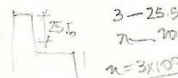 25.5
3 — 25.5
n —
n = 3×10